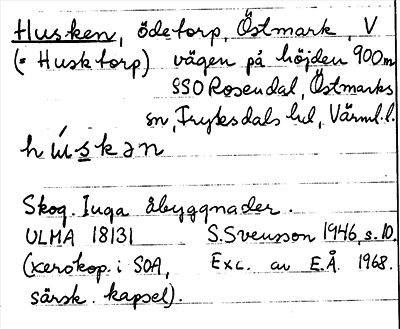 Husken, ödetorp, Östmark, V
(= Husktorp) vägen på höjden 900 m
SSO Rosendal, Östmarks
sn, Fryksdals hd, Värml. l.
hú̵skən
Skog. Inga åbyggnader.
ULMA 18131 S. Svensson 1946, s. 10.
(xerokop. i SOA, Exc. av E.Å. 1968.
särsk. kapsel).